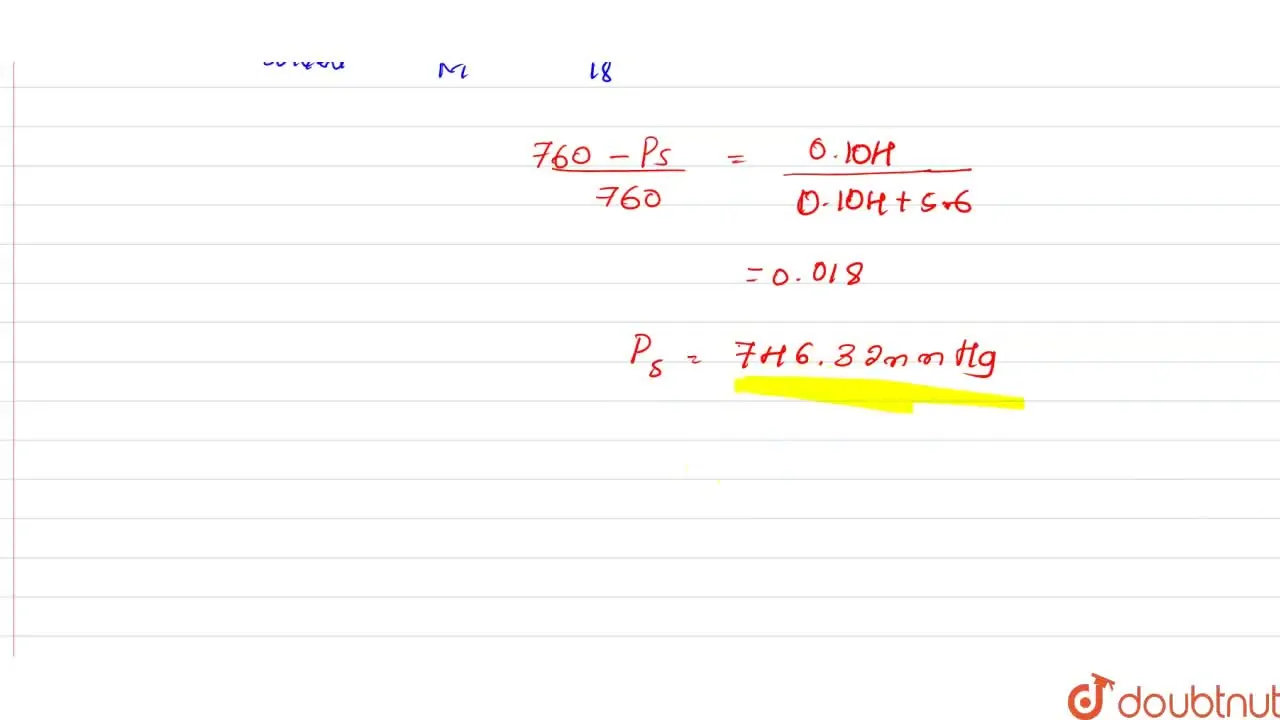 M 18
760 - Ps = 0.104
760 0.104 + 5.6
= 0.018
Ps = 746.32mm Hg
doubtnut